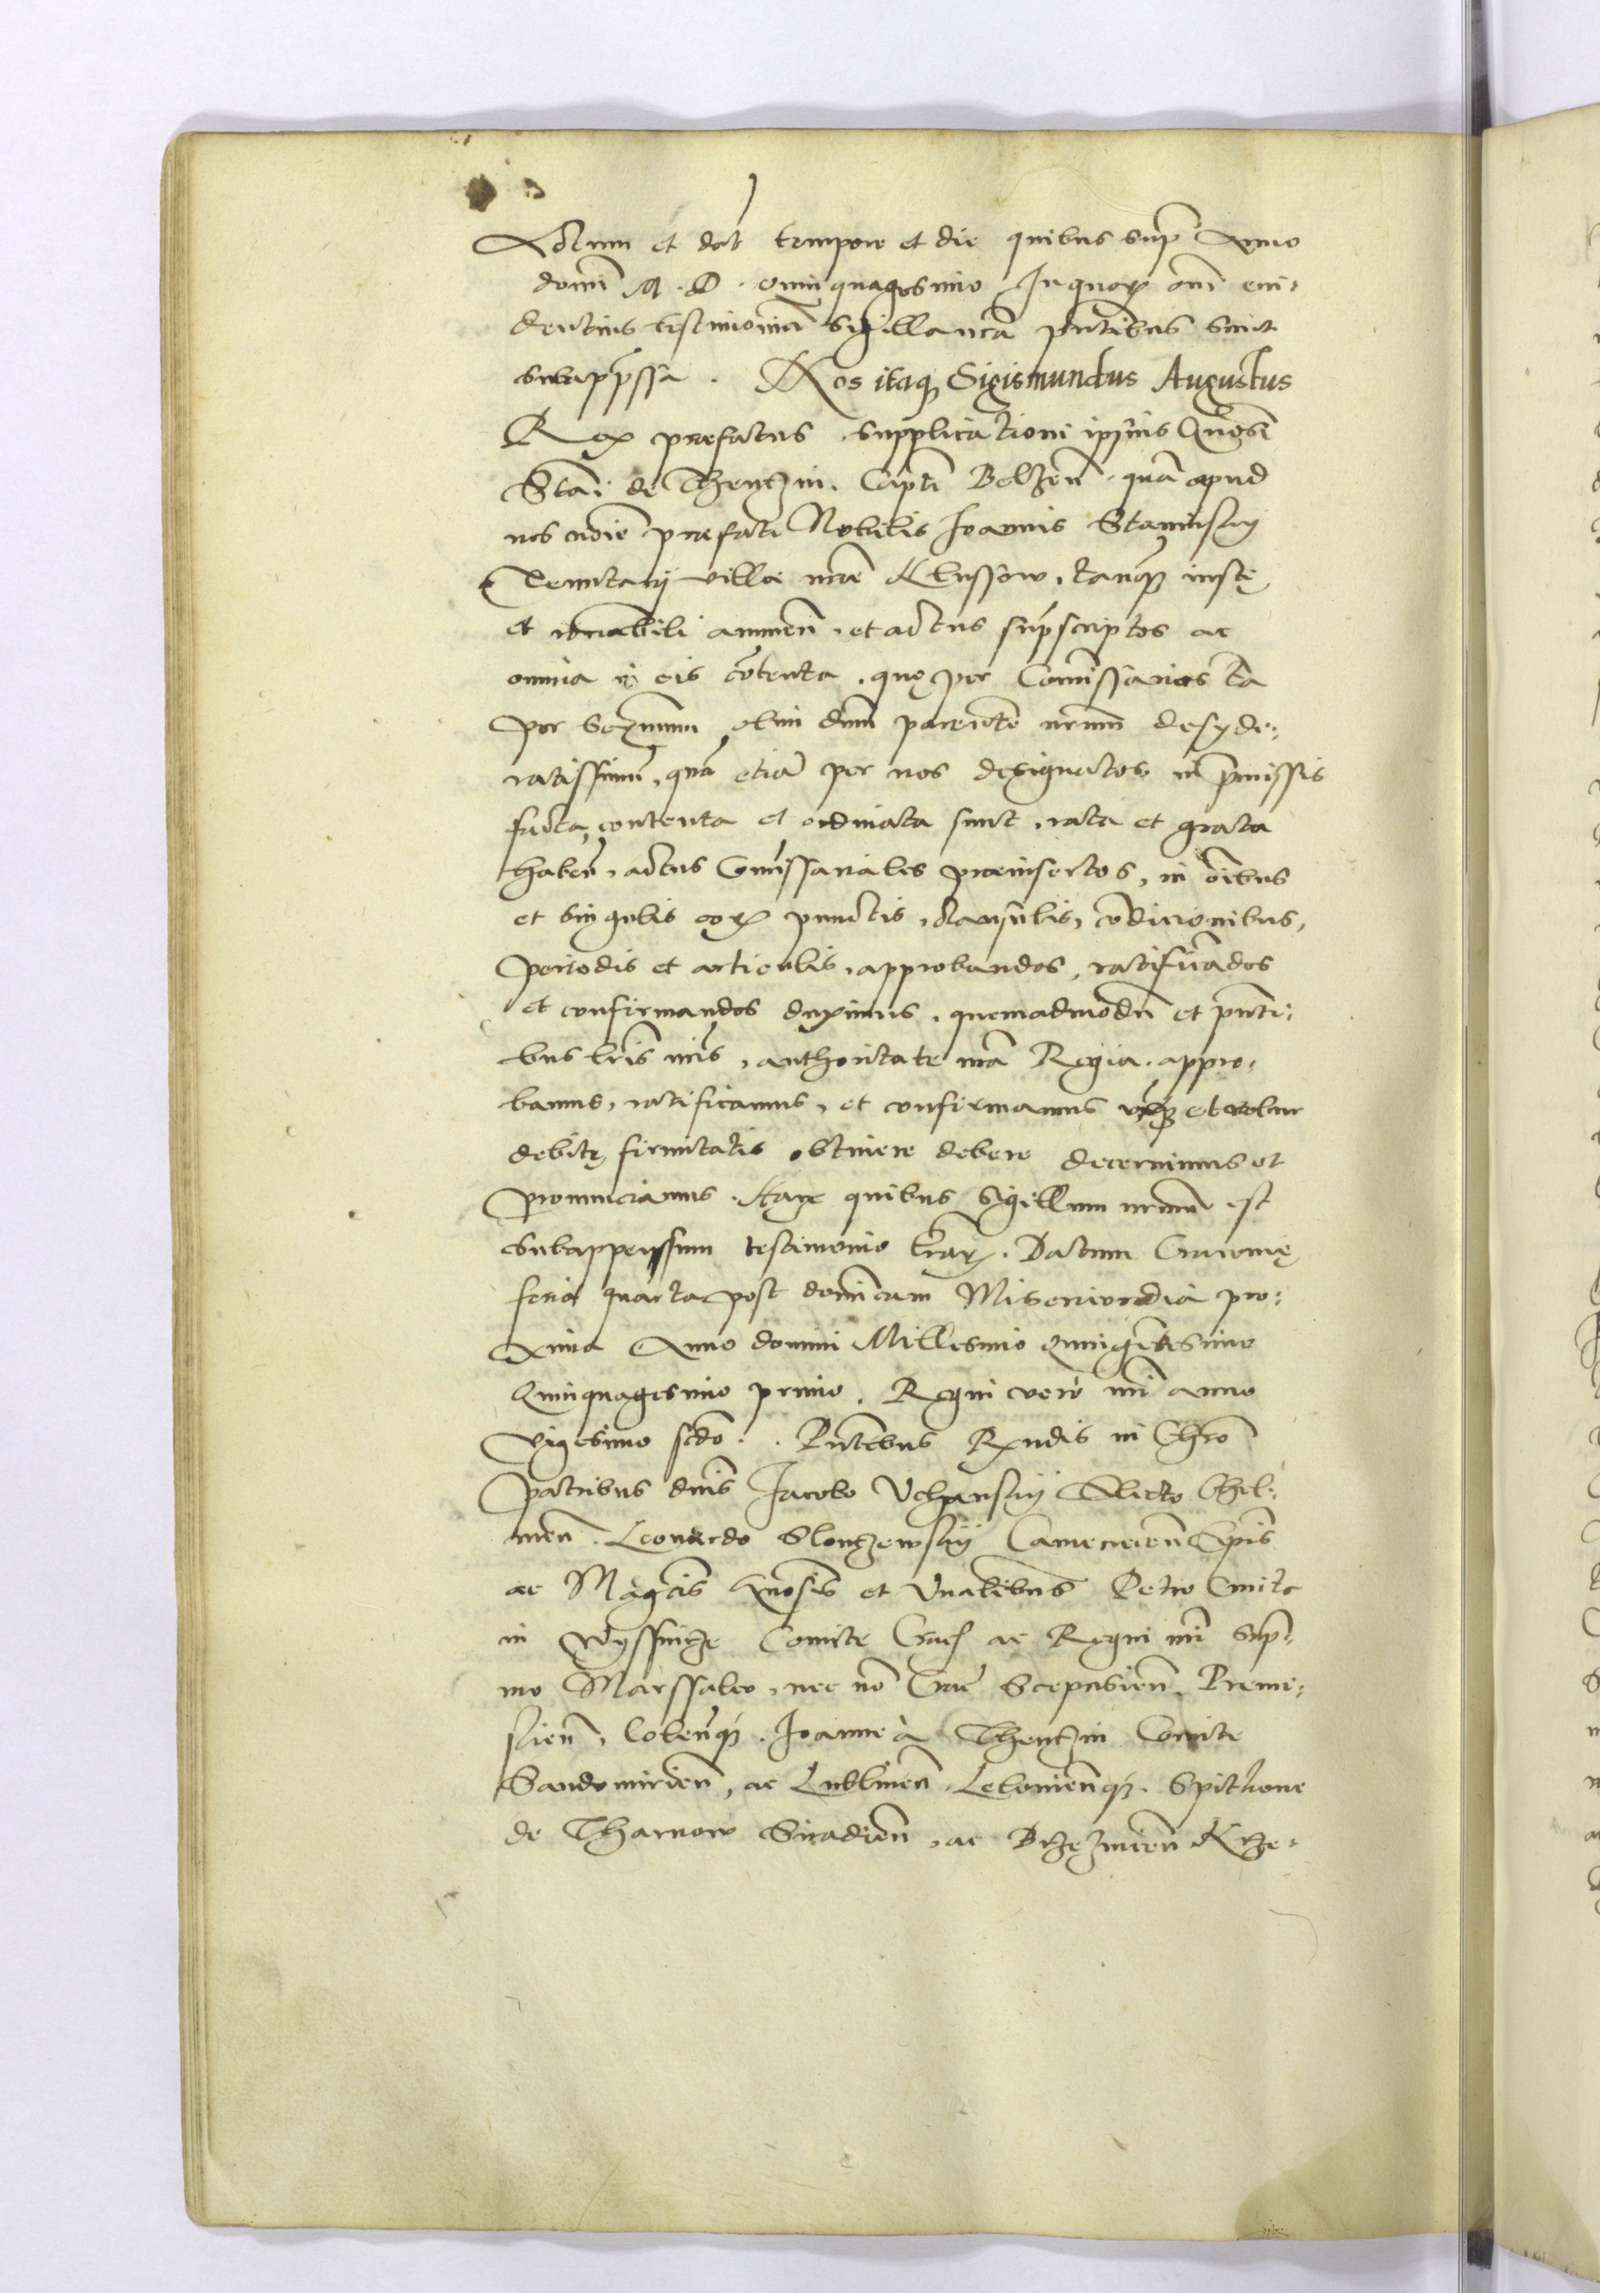 Actum et dat tempore et die quibus sup Anno
domi M. D. quinquagesimo In quorꝝ om̃ evi:
dentius testimoniũ sigilla nrã pñtibus sunt
subappẽssa. Nos itaqꝫ Sigismundus Augustus
Rex præfatus supplicationi ipsius Gñosi
Stañi de Thentzin. Capti Belzen̄. quã apud
nos noĩe præfati Nobilis Joannis Staninskij
Tenutarij villæ nræ Klussow, tanqꝫ iustę
et rõnabili annuen̄. et actus supscriptos ac
omnia in eis cõtenta, quę per Comissarios tã
per Serꝫnimũ olim dnũ parentẽ nrũm desyde:
ratissimũ, quã etiã per nos designatos in p̃missis
facta contenta et ordinata sunt, rata et grata
haben̄, actus Comissariales præinsertos, in oĩbus
et singulis eorꝝ punctis, clausulis, cõdicionibus,
periodis et articulis, approbandos, ratificãdos
et confirmandos duximus, quemadmodũ et pñti:
bus lr̃is nr̃is, authoritate nr̃a Regia appro:
bamus, ratificamus, et confirmamus et robur
debitę firmitatis obtinere debere decernimus et
pronunciamus. Harꝝ quibus Sigillum nrũm est
subappenssum testimonio lrãrꝝ. Datum Cracovię
feria quarta post dominicam Misericordia pro:
xima Anno domini Millesimo quingẽtesimo
Quinquagesimo primo. Regni vero nr̃i anno
vigesimo scdo. Pñtibus Rxndis in Chr̃o
patribus dnis Jacobo Uchanskij Electo Chel:
men̄. Leonardo Slonczewskij Camenecen̄ Ep̃is
ac Mag͡cis Gnosis et Petro Cmita
in Wyssnicze Comite Crac̄ ac Regni nr̃i sup:
mo Marssalco, nec nõ Crac̄ Scepusien̄, Premi:
slien̄, Colen̄qꝫ. Joanne à Thentzin Comite
Sandomirien̄, ac Lublinen̄ Lelovien̄qꝫ. Spithone
de Tharnow Siradien̄, ac Krze: